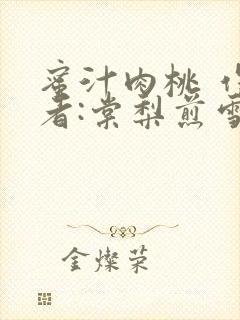 蜜汁肉桃 作
者:棠梨煎雪
金燦荣